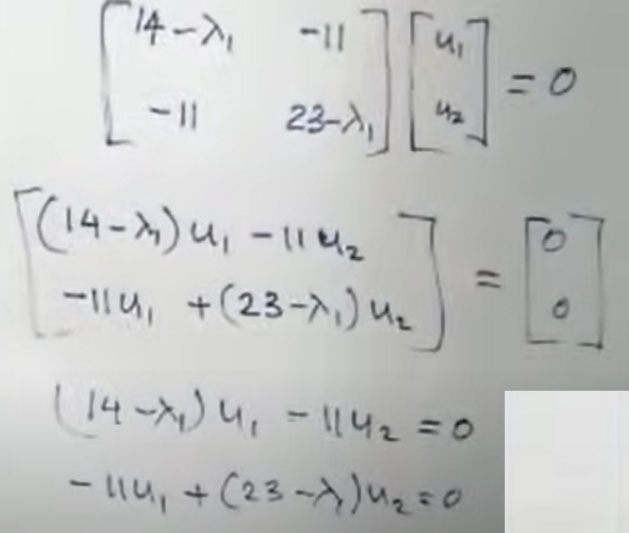 [14-λ₁ -11] [u₁] = 0
[-11 23-λ₁] [u₂]
[(14-λ₁)u₁ -11u₂] = [0]
[-11u₁ +(23-λ₁)u₂] [0]
(14-λ₁)u₁ -11u₂ = 0
-11u₁ +(23-λ₁)u₂=0